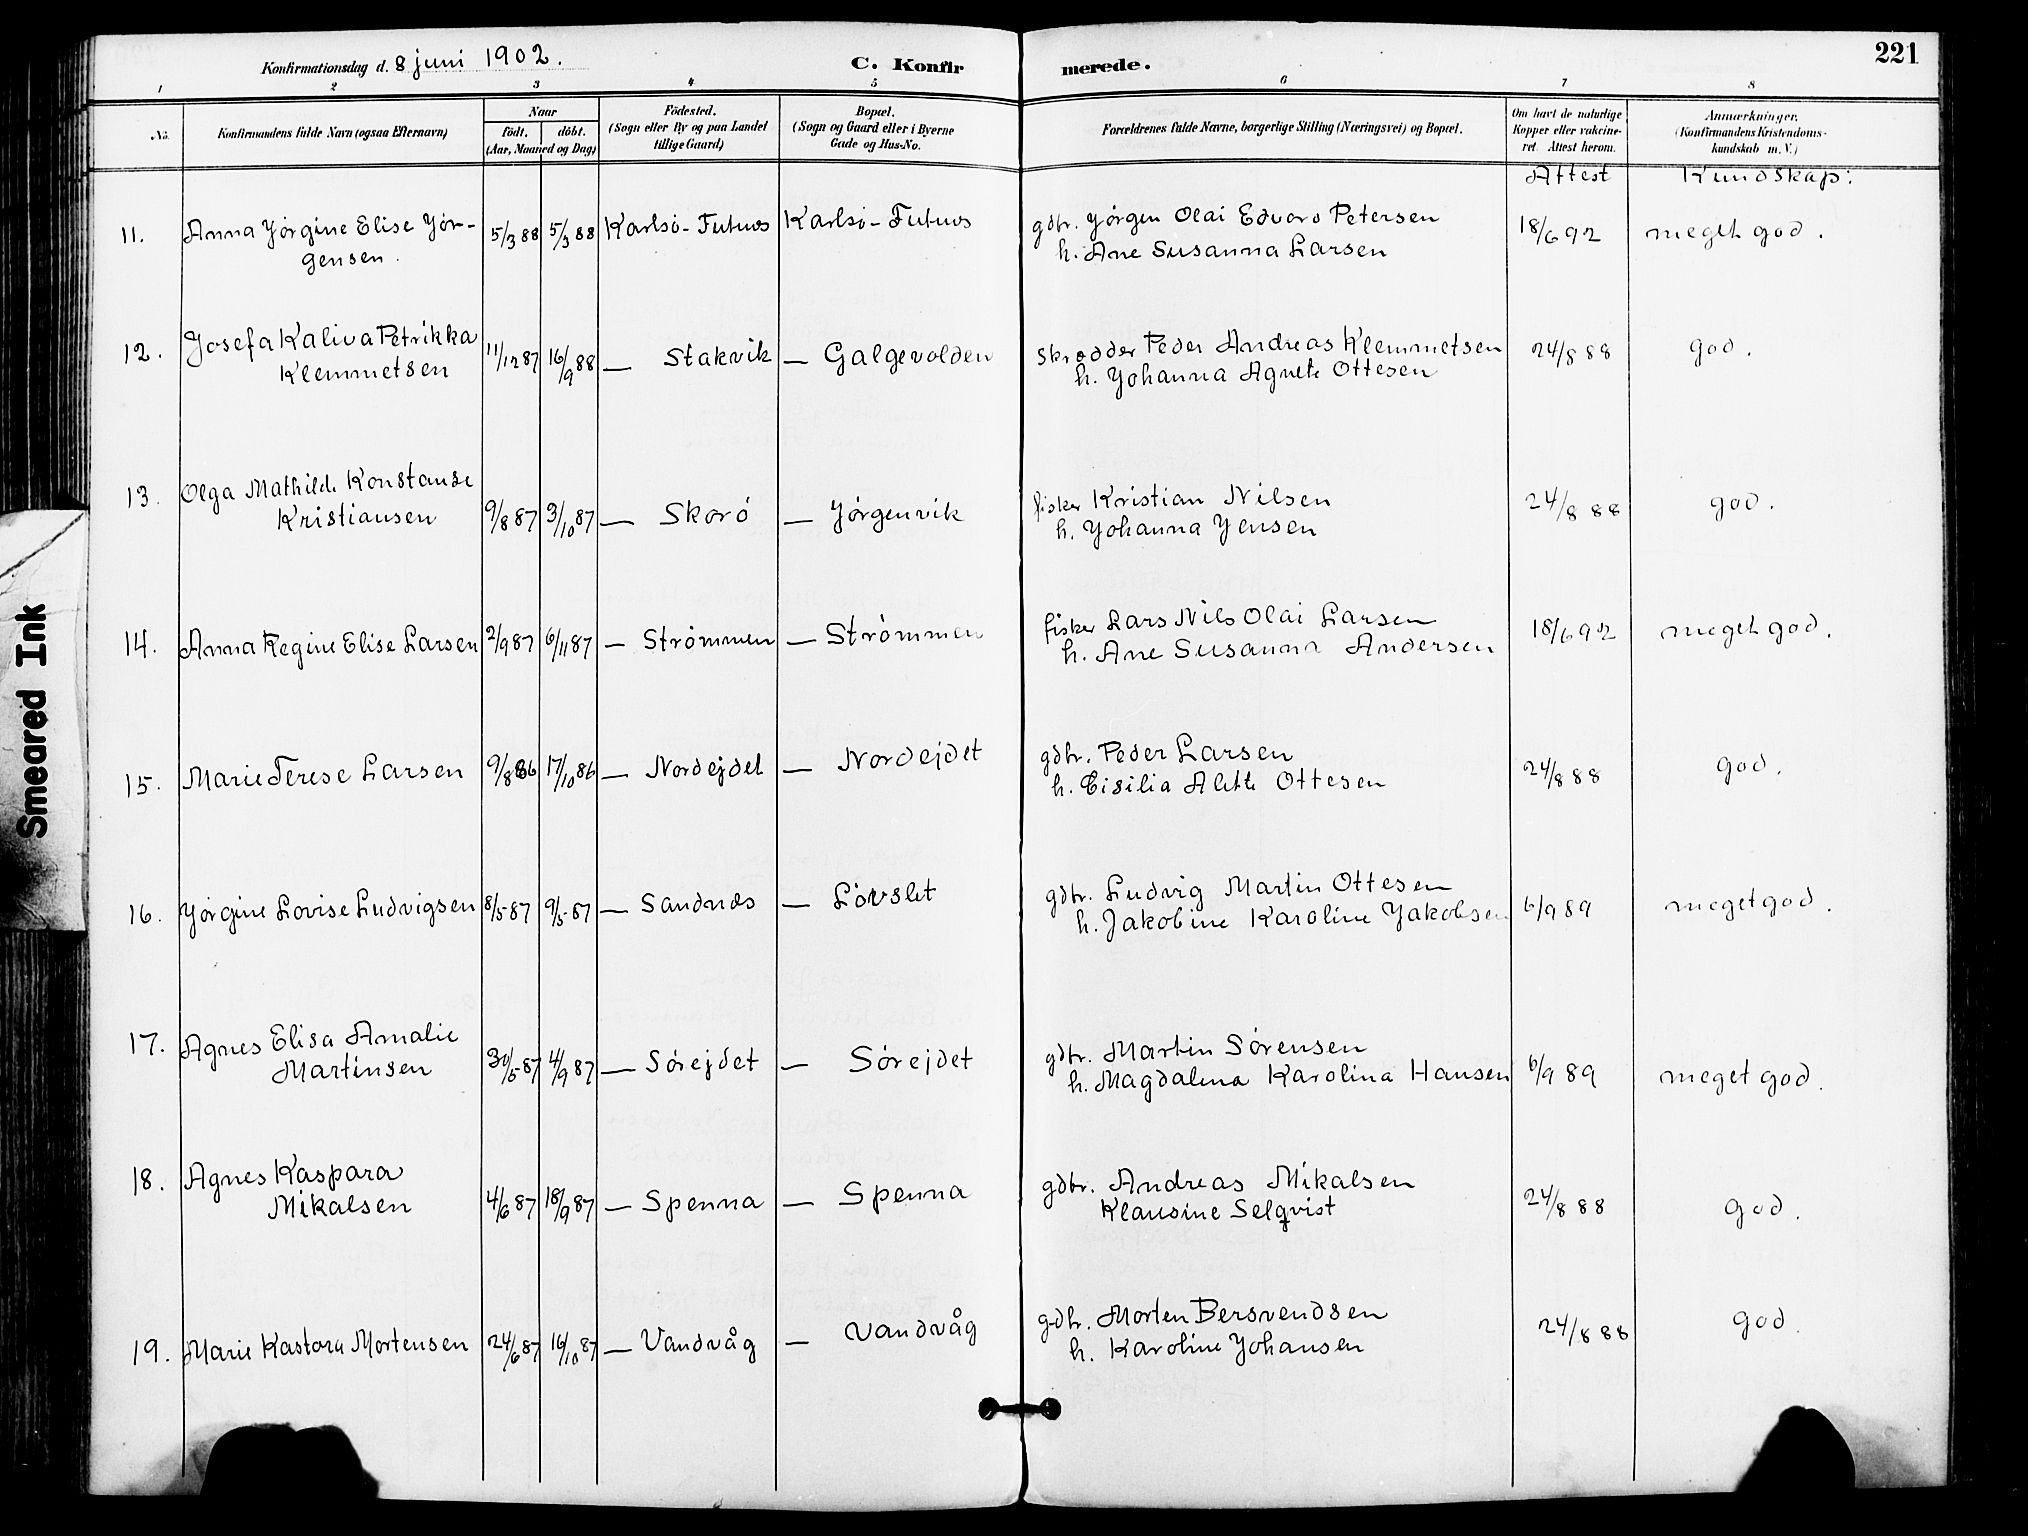 221
Konfirmationsdag d. 8 juni 1902.
C. Konfir merede.
1 2 3 4 5 6 7 8
No. Konfirmandens fulde Navn (ogsaa Efternavn)
Naar
födt. döbt.
(Aar, Maaned og Dag)
Födested.
(Sogn eller By og paa Landet
tillige Gaard)
Bopæl.
(Sogn og Gaard eller i Byerne
Gade og Hus-No.
Forældrenes fulde Navne, borgerlige Stilling (Næringsvei) og Bopæl.
Om havt de naturlige
Kopper eller vakcine-
ret. Attest herom.
Anmærkninger.
(Konfirmandens Kristendoms-
kundskab m. V.)
Attest Kundskap:
11. Anna Jørgine Elise Jør- 5/3 88 5/3 88 Karlsö - Futnæs Karlsö - Futnæs gdbr. Jørgen Olai Edvard Petersen 18/6 92 meget god.
gensen. h. Ane Susanna Larsen
12. Josefa Kaliva Petrikka 11/12 87 16/9 88 — Stakvik — Galgevolden Skrædder Peder Andreas Klemmetsen 24/8 88 god.
Klemmetsen h. Johanna Agnete Ottesen
13. Olga Mathilde Konstanse fisker Kristian Nilsen 24/8 88 god.
Kristiansen 9/8 87 3/10 87 — Skorö — Jørgenvik h. Johanna Jensen
14. Anna Regine Elise Larsen 2/9 87 6/11 87 — Strømmen — Strømmen fisker Lars Nils Olai Larsen 18/6 92 meget god.
h. Ane Susanna Andersen
15. Marie Terese Larsen 9/8 86 17/10 86 — Nordejdet — Nordejdet gdbr. Peder Larsen 24/8 88 god.
h. Cisilia Alette Ottesen
16. Jørgine Lovise Ludvigsen 8/5 87 9/5 87 — Sandnæs — Løvslet gdbr. Ludvig Martin Ottesen 6/9 89 meget god.
h. Jakobine Karoline Jakobsen
17. Agnes Elisa Amalie gdbr. Martin Sørensen
Martinsen 30/5 87 4/9 87 — Sørejdet — Sørejdet h. Magdalena Karolina Hansen 6/9 89 meget god.
18. Agnes Kaspara gdbr. Andreas Mikalsen
Mikalsen 4/6 87 18/9 87 — Spenna — Spenna Klausine Selqvist 24/8 88 god.
19. Marie Kastora Mortensen 24/6 87 16/10 87 — Vandvåg — Vandvåg gdbr. Morten Bersvendsen 24/8 88 god.
h. Karoline Johansen
Smeared Ink